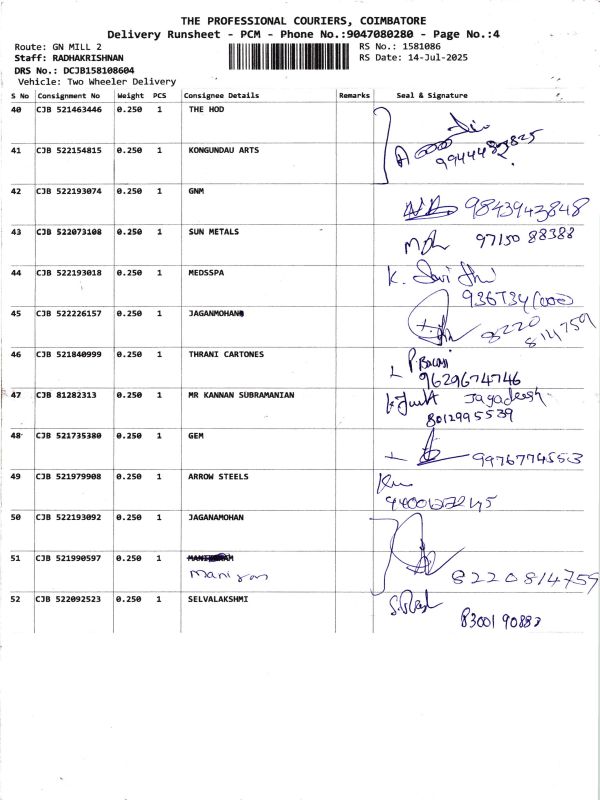 THE PROFESSIONAL COURIERS, COIMBATORE
Delivery Runsheet - PCM - Phone No.:9047080280 - Page No.:4
Route: GN MILL 2
RS No.: 1581086
Staff: RADHAKRISHNAN
RS Date: 14-Jul-2025
DRS No.: DCJB158108604
Vehicle: Two Wheeler Delivery
S No Consignment No Weight PCS Consignee Details Remarks Seal & Signature
40 CJB 521463446 0.250 1 THE HOD
41 CJB 522154815 0.250 1 KONGUNDAU ARTS
42 CJB 522193074 0.250 1 GNM
9843943848
43 CJB 522073108 0.250 1 SUN METALS
97150 88388
44 CJB 522193018 0.250 1 MEDSSPA
45 CJB 522226157 0.250 1 JAGANMOHAN
8220
814759
46 CJB 521840999 0.250 1 THRANI CARTONES
9629674746
47 CJB 81282313 0.250 1 MR KANNAN SUBRAMANIAN
Jagadeesh
8012995539
48 CJB 521735380 0.250 1 GEM
9976774553
49 CJB 521979908 0.250 1 ARROW STEELS
50 CJB 522193092 0.250 1 JAGANAMOHAN
51 CJB 521990597 0.250 1
8220814759
52 CJB 522092523 0.250 1 SELVALAKSHMI
8300190883